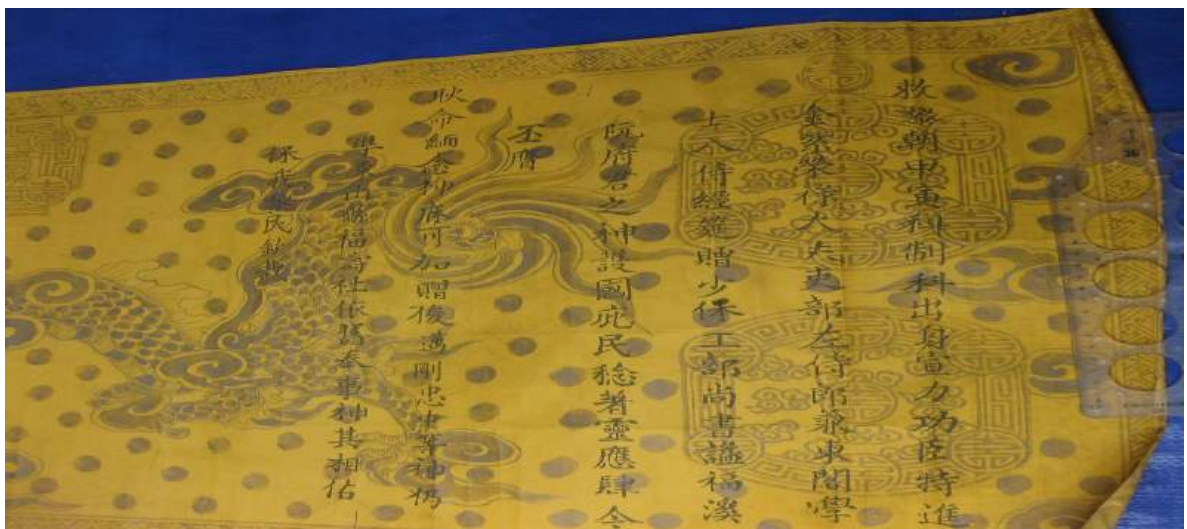 敕黎朝甲寅科制科出身宣力功臣特進
金紫榮祿大夫吏部左侍郎兼東閣學
士入侍經筵贈少保工部尚書謚福溪
阮府君之神護國庇民稔著靈應肆今
丕膺
耿命緬念神庥可加贈俊邁剛忠中等神仍
準福社依舊奉事神其相佑
保我黎民欽哉